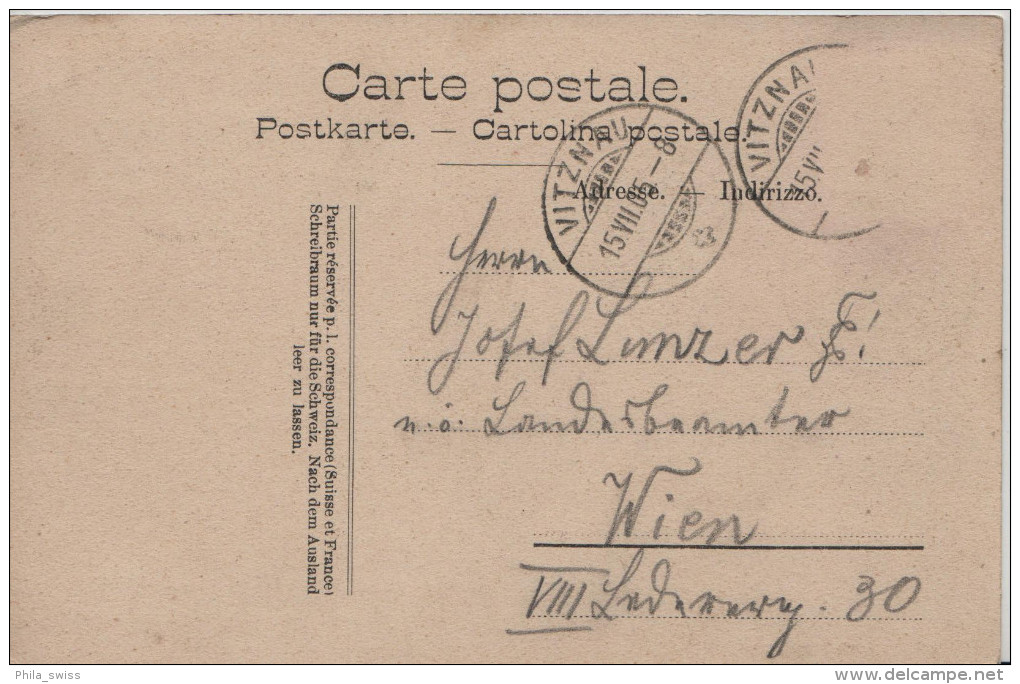 Carte postale.
Postkarte. — Cartolina postale.
Adresse. — Indirizzo.
VITZNAU
15.VII.05.–8
VITZNAU
15.VII
Partie réservée p. l. correspondance (Suisse et France)
Schreibraum nur für die Schweiz. Nach dem Ausland
leer zu lassen.
Herrn
Josef Lunzer
n. ö. Landesbeamter
Wien
VIII Lederergs. 30
Phila_swiss
delcampe.net